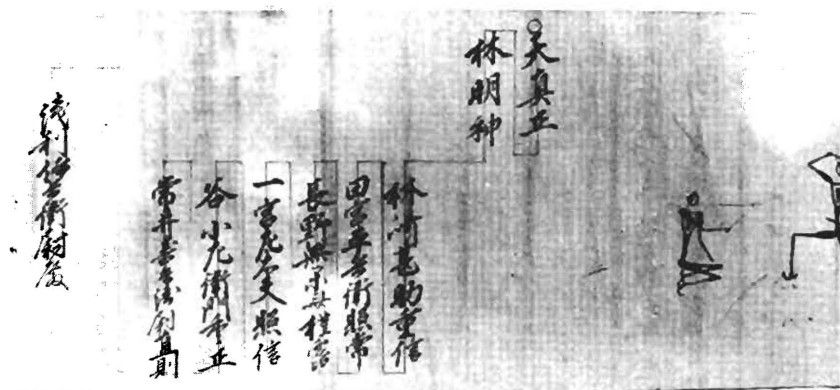 天真正
林明神
林崎甚助重信
田宮平兵衛照常
長野無樂斎槿露
一宮左太夫照信
谷小左衛門季正
常井喜兵衛尉直則
淺利伊兵衛尉殿